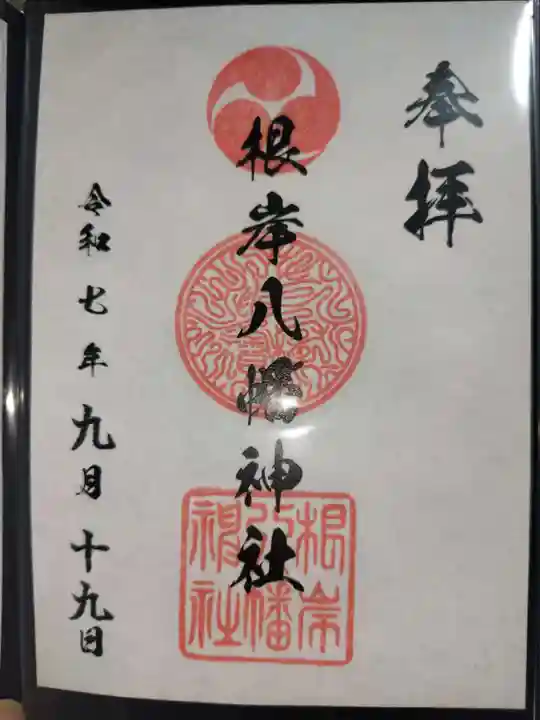 奉拝
根岸八幡神社
根岸
八幡
神社
令和七年九月十九日